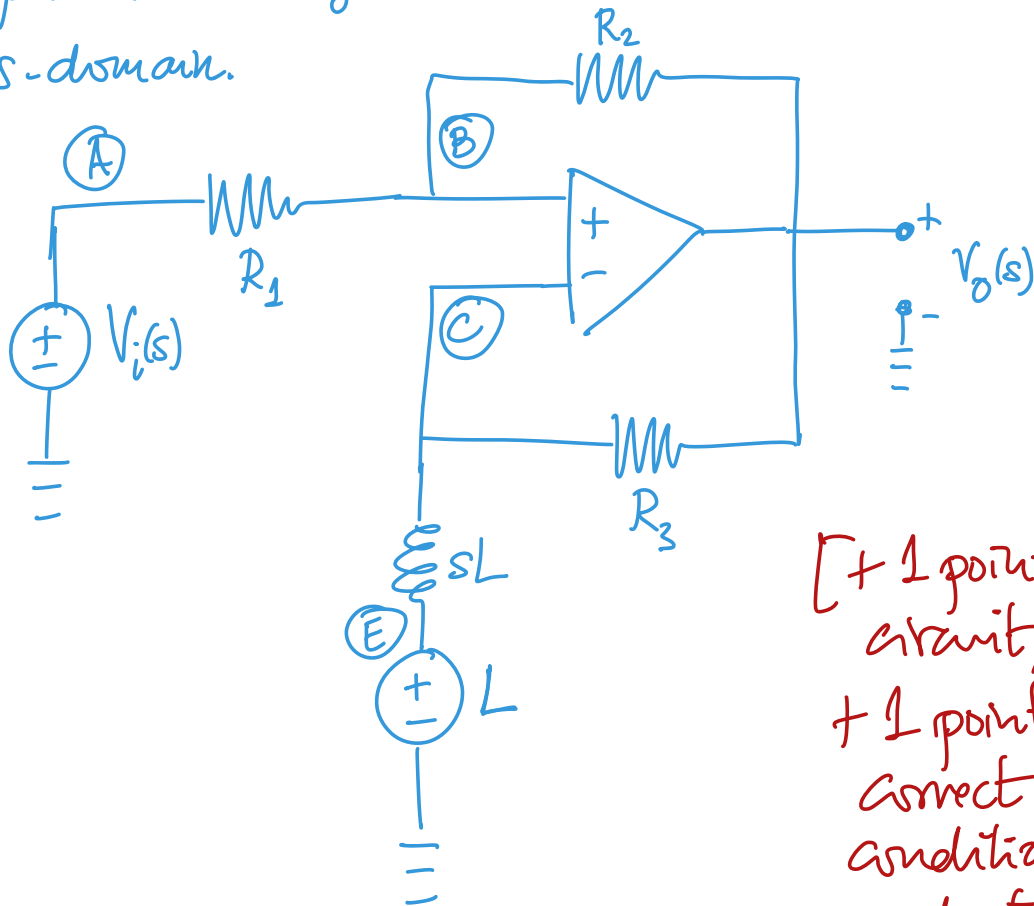 s-domain.
R₂
A
B
+
R₁
+
-
+
V₀(s)
-
C
+
-
Vᵢ(s)
R₃
sL
E
+
-
L
[+1 poin
circuit,
+1 point
correct
conditio